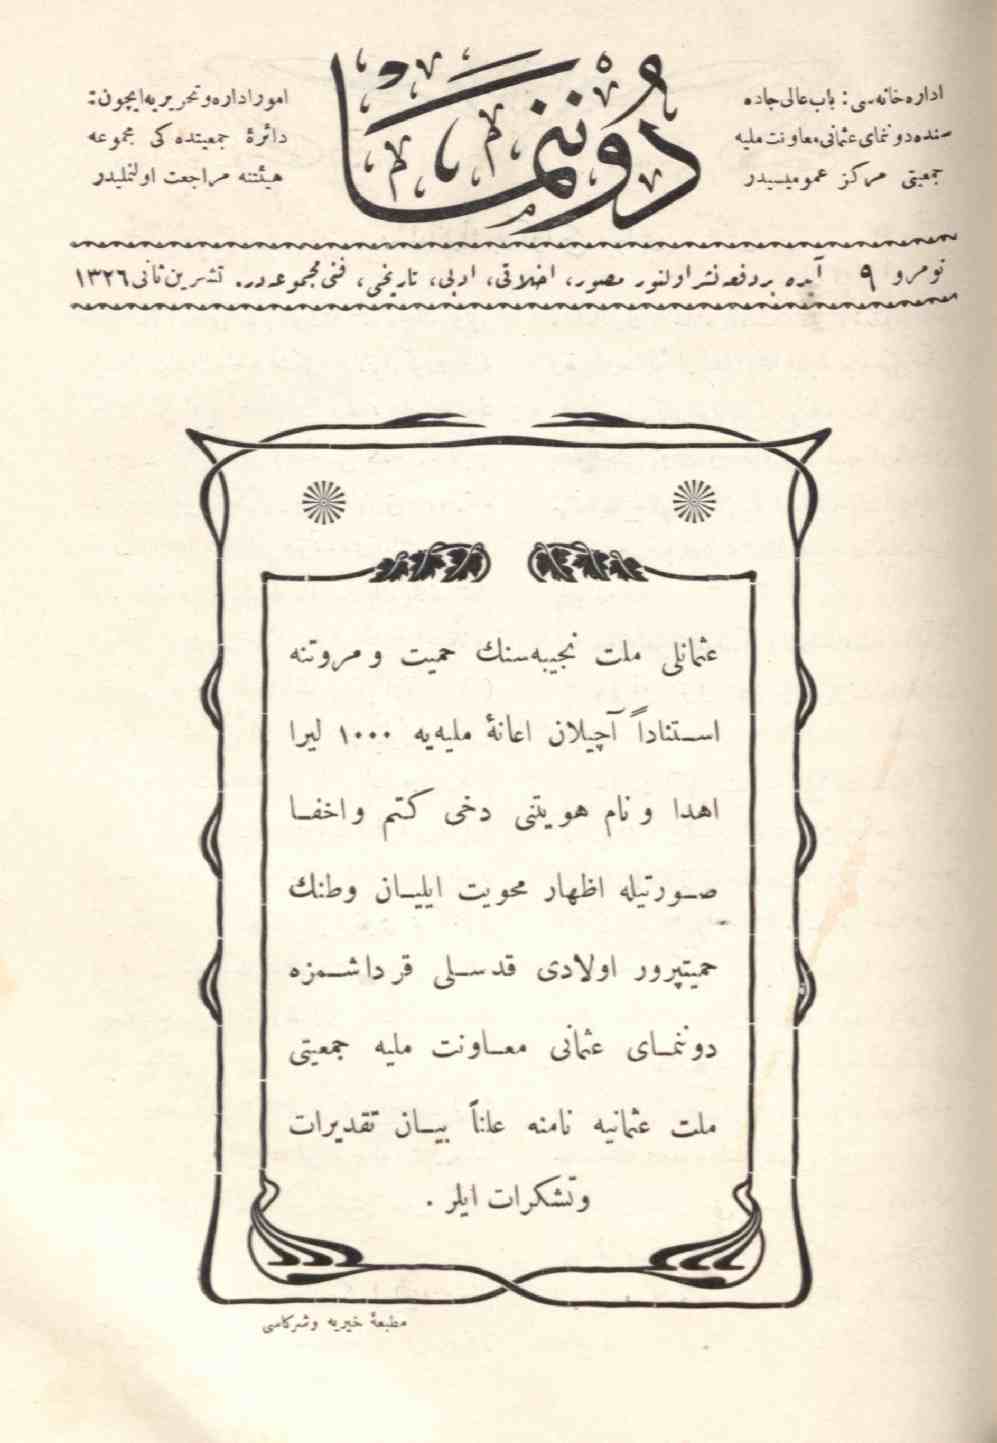 دوننما
اداره‌خانه‌سی: باب عالی جاده
سنده دوننمای عثمانی معاونت ملیه
جمعیتی مرکز عمومیسیدر
امور اداره و تحریریه ایچون:
دائرهٔ جمعیتده کی مجموعه
هیئتنه مراجعت اولنملیدر
نومرو ۹ آیده بر دفعه نشر اولنور مصور، اخلاقی، ادبی، تاریخی، فنی مجموعه‌در. تشرین ثانی ۱۳۲٦
عثمانلی ملت نجیبه‌سنك حمیت و مروتنه
استناداً آچیلان اعانهٔ ملیه‌یه ۱۰۰۰ لیرا
اهدا و نام هویتنی دخی کتم و اخفا
صورتیله اظهار محویت ایلیان وطنك
حمیتپرور اولادی قدسلی قرداشمزه
دوننمای عثمانی معاونت ملیه جمعیتی
ملت عثمانیه نامنه علناً بیان تقدیرات
و تشکرات ایلر .
مطبعهٔ خیریه و شرکاسی